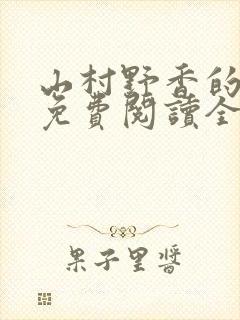 山村野香的
免費閱讀全
果子里醬